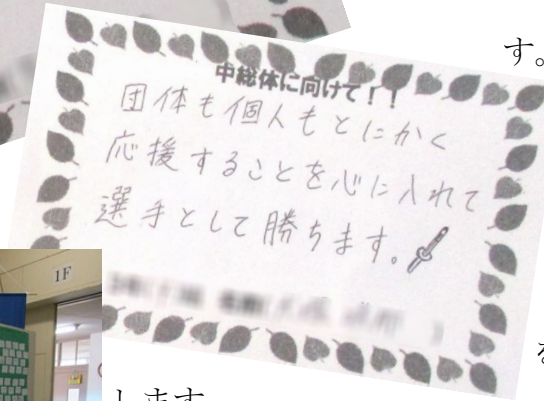 す。
中総体に向けて！！
団体も個人もとにかく
応援することを心に入れて
選手として勝ちます。
1F
します